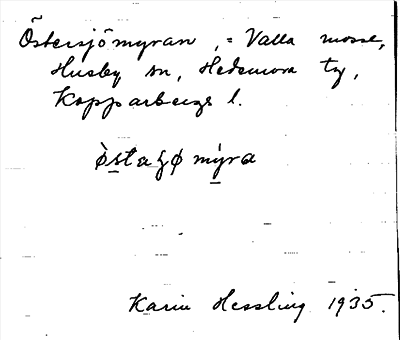 Östersjömyran, = Valla mosse,
Husby sn, Hedemora tg,
Kopparbergs l.
Karin Hessling 1935.